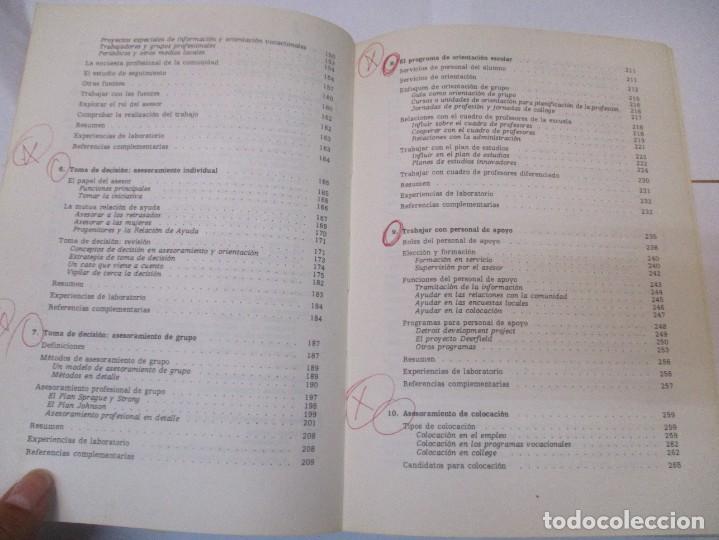 Proyectos especiales de información y orientación vocacionales 150
Trabajadores y grupos profesionales
Periódicos y otros medios locales
La encuesta profesional de la comunidad
El estudio de seguimiento
Otras fuentes
Trabajar con las fuentes
Explorar el rol del asesor
Comprobar la realización del trabajo
Resumen
Experiencias de laboratorio
Referencias complementarias 184
6. Toma de decisión: asesoramiento individual
El papel del asesor
Funciones principales 185
Tomar la iniciativa
La mutua relación de ayuda
Asesorar a los retrasados
Asesorar a las mujeres
Progenitores y la Relación de Ayuda 170
Toma de decisión: revisión 171
Conceptos de decisión en asesoramiento y orientación 171
Estrategia de toma de decisión 173
Un caso que viene a cuento 174
Vigilar de cerca la decisión 175
Resumen 182
Experiencias de laboratorio 183
Referencias complementarias 184
7. Toma de decisión: asesoramiento de grupo 187
Definiciones 187
Métodos de asesoramiento de grupo 189
Un modelo de asesoramiento de grupo 189
Métodos en detalle 190
Asesoramiento profesional de grupo 197
El Plan Sprague y Strong 198
El Plan Johnson 199
Asesoramiento profesional en detalle 201
Resumen 208
Experiencias de laboratorio 208
Referencias complementarias 209
8. El programa de orientación escolar
Servicios de personal del alumno 211
Servicios de orientación 211
Enfoques de orientación de grupo 212
Guía como orientación de grupo 215
Cursos o unidades de orientación para planificación de la profesión. 216
Jornadas de profesión y jornadas de college 216
Relaciones con el cuadro de profesores de la escuela 218
Influir sobre el cuadro de profesores 218
Cooperar con el cuadro de profesores 219
Relaciones con la administración
Trabajar con el plan de estudios 221
Influir en el plan de estudios 222
Planes de estudios innovadores 222
Trabajar con cuadro de profesores diferenciado 224
Resumen 230
Experiencias de laboratorio 231
Referencias complementarias 232
9. Trabajar con personal de apoyo 235
Roles del personal de apoyo 236
Elección y formación
Formación en servicio 240
Supervisión por el asesor 240
Funciones del personal de apoyo 242
Tramitación de la información 241
Ayudar en las relaciones con la comunidad 244
Ayudar en las encuestas locales 246
Ayudar en la colocación 247
Programas para personal de apoyo 248
Detroit development project 249
El proyecto Deerfield 250
Otros programas 253
Resumen 256
Experiencias de laboratorio 256
Referencias complementarias 257
10. Asesoramiento de colocación 259
Tipos de colocación 259
Colocación en el empleo 259
Colocación en los programas vocacionales 262
Colocación en college 262
Candidatos para colocación 265
todocoleccion.net